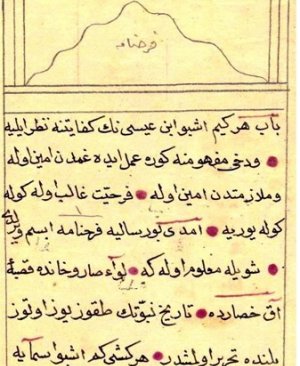 فرحنامه
باب هر كيم اشبو ابن عيسى نك كفايتنه نظر ايليه
ودخى مفهومنه كوره عمل ايده غمدن امين اوله
وملازمتدن امين اوله فرحيّت غالب اوله كوله
كوله يوريه امدى بو رساليه فرحنامه اسم ويردى
شويله معلوم اوله كه لواء صاروخانده قصبۀ
آق حصارده تاريخ نبوّتك طقوز يوز اوتوز
يلنده تحرير اولمشدر هر كشى كم اشبو اسمايه